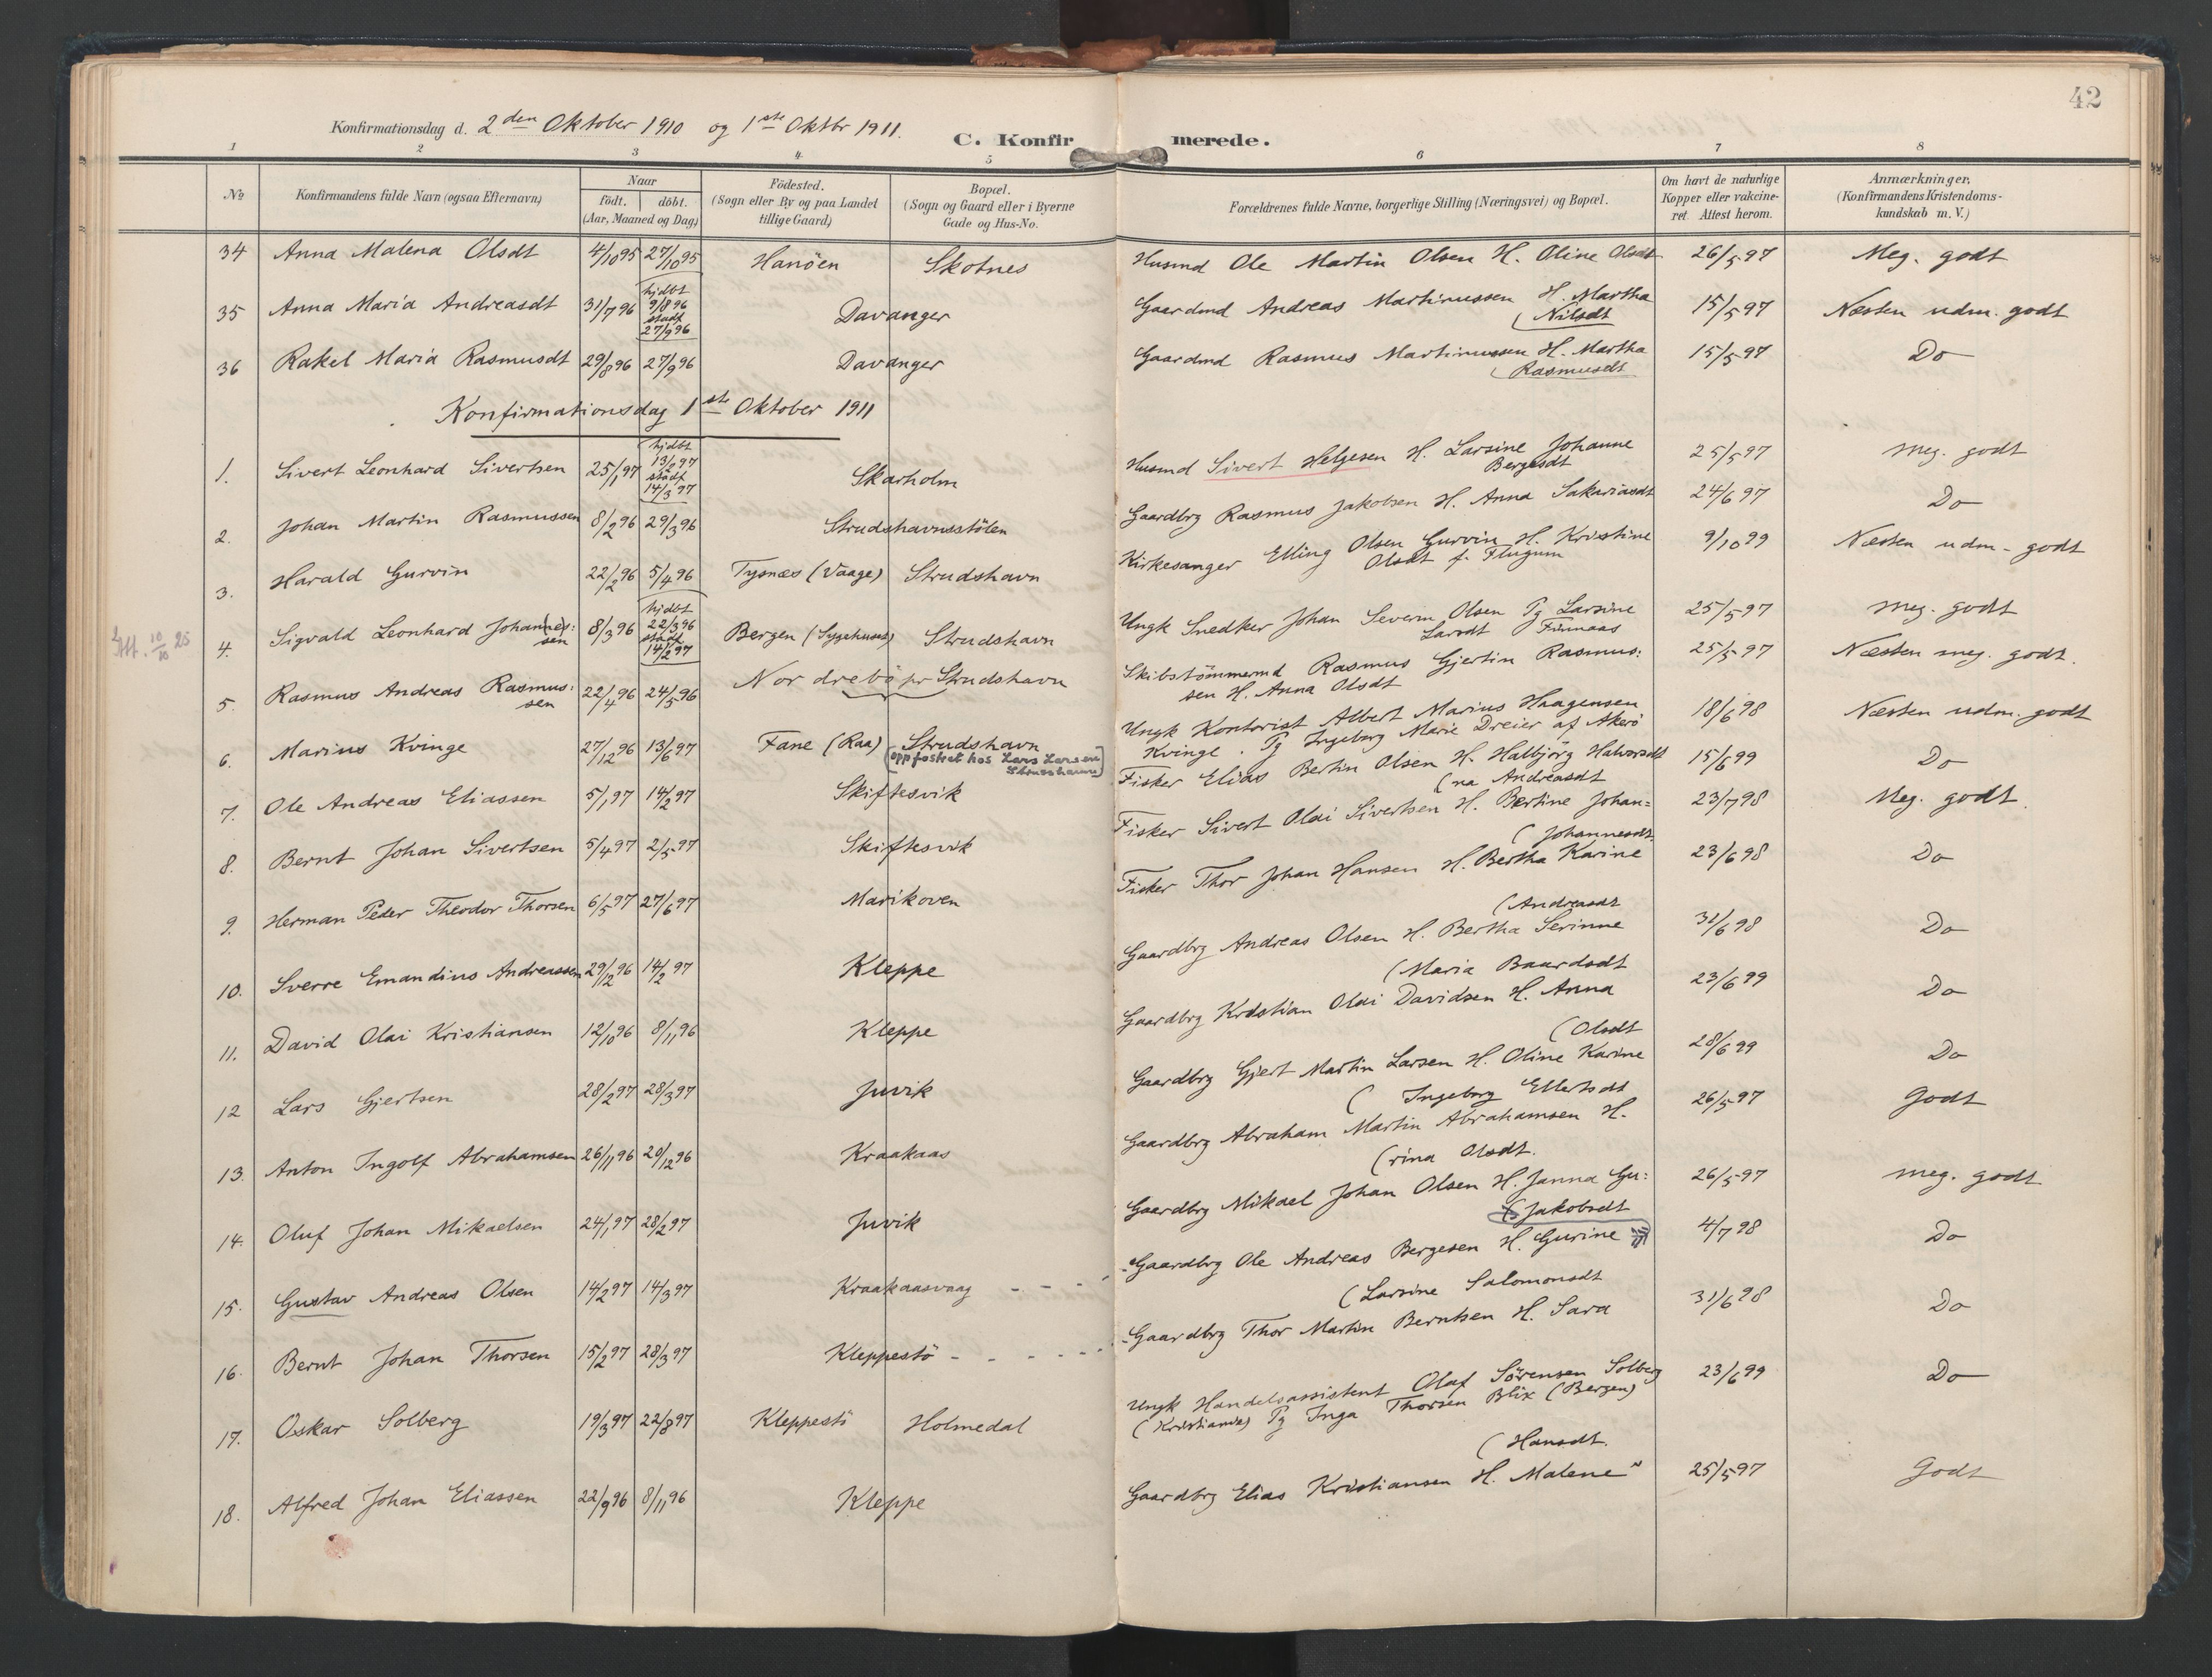 42
Konfirmationsdag d. 2den Oktober 1910 og 1ste Oktbr 1911.
C. Konfirmerede.
1 2 3 4 5 6 7 8
No
Konfirmandens fulde Navn (ogsaa Efternavn)
Naar
födt. döbt.
(Aar, Maaned og Dag)
Födested.
(Sogn eller By og paa Landet
tillige Gaard)
Bopæl.
(Sogn og Gaard eller i Byerne
Gade og Hus-No.
Forældrenes fulde Navne, borgerlige Stilling (Næringsvei) og Bopæl.
Om havt de naturlige
Kopper eller vakcine-
ret. Attest herom.
Anmærkninger,
(Konfirmandens Kristendoms-
kundskab m. V.)
34 Anna Malena Olsdt 4/10 95 27/10 95 Hanöen Skotnes Husmd Ole Martin Olsen H. Oline Olsdt 26/5 97 Meg. godt
35 Anna Maria Andreasdt 31/7 96 hjdbt 9/8 96 stadf 27/9 96 Davanger Gaardmd Andreas Martinussen H. Martha
(Nilsdt 15/5 97 Næsten udm. godt
36 Rakel Maria Rasmusdt 29/8 96 27/9 96 Davanger Gaardmd Rasmus Martinussen H. Martha
(Rasmusdt 15/5 97 Do
Konfirmationsdag 1ste Oktober 1911
1. Sivert Leonhard Sivertsen 25/1 97 hjdbt 13/2 97 stadf 14/3 97 Skarholm Husmd Sivert Helgesen H. Larsine Johanne
Bergesdt 25/5 97 meg. godt
2. Johan Martin Rasmussen 8/2 96 29/3 96 Strudshavnsstölen Gaardbrg Rasmus Jakobsen H. Anna Sakariasdt 24/6 97 Do
3. Harald Gurvin 22/2 96 5/4 96 Tysnæs (Vaage) Strudshavn Kirkesanger Elling Olsen Gurvin H. Kristine
Olsdt f. Flugum 9/10 99 Næsten udm. godt
Att. 10/10 25
4. Sigvald Leonhard Johannes:
sen 8/3 96 hjdbt 22/3 96 stadf 14/2 97 Bergen (Sygehuset) Strudshavn Ungk Snedker Johan Severin Olsen Pg Larsine
Larsdt Finnaas 25/5 97 meg. godt
5. Rasmus Andreas Rasmus:
sen 22/4 96 24/5 96 Nordrebö pr Strudshavn Skibstömmermd Rasmus Gjertin Rasmus:
sen H. Anna Olsdt 25/5 97 Næsten meg. godt.
6. Marius Kvinge 27/12 96 13/6 97 Fane (Raa) Strudshavn
(oppfostret hos Lars Larsen
Strusshavn) Ungk Kontorist Albert Marius Haagensen
Kvinge. Pg Ingeborg Marie Dreier af Akerö 18/6 98 Næsten udm. godt
7. Ole Andreas Eliassen 5/1 97 14/2 97 Skiftesvik Fisker Elias Bertin Olsen H. Halbjörg Halvorsdt 15/6 99 Do
8. Bernt Johan Sivertsen 5/4 97 2/5 97 Skiftesvik (na Andreasdt
Fisker Sivert Olai Sivertsen H. Bertine Johan= 23/7 98 Meg. godt.
9. Herman Peder Theodor Thorsen 6/5 97 27/6 97 Marikoven (Johannesdt
Fisker Thor Johan Hansen H. Bertha Karine 23/6 98 Do
10. Sverre Emandius Andreassen 29/12 96 14/2 97 Kleppe (Andreasdt
Gaardbrg Andreas Olsen H. Bertha Serinne 31/6 98 Do
11. David Olai Kristiansen 12/10 96 8/11 96 Kleppe (Maria Baardsdt
Gaardbrg Kristian Olai Davidsen H. Anna 23/6 99 Do
12 Lars Gjertsen 28/2 97 28/3 97 Juvik (Olsdt
Gaardbrg Gjert Martin Larsen H. Oline Karine 28/6 99 Do
13. Anton Ingolf Abrahamsen 26/11 96 20/12 96 Kraakaas (Ingeborg Ellertsdt
Gaardbrg Abraham Martin Abrahamsen H. 26/5 97 Godt
14. Oluf Johan Mikaelsen 24/1 97 28/2 97 Juvik (rina Olsdt.
Gaardbrg Mikael Johan Olsen H. Janna Gu: 26/5 97 meg. godt
15. Gustav Andreas Olsen 14/2 97 14/3 97 Kraakaasvaag (Jakobsdt
Gaardbrg Ole Andreas Bergesen H. Gurine 4/7 98 Do
16. Bernt Johan Thorsen 15/2 97 28/3 97 Kleppestö (Larsine Salomonsdt
Gaardbrg Thor Martin Berntsen H. Sara 31/6 98 Do
17. Oskar Solberg 19/3 97 22/8 97 Kleppestö Holmedal Ungk Handelsassistent Olaf Sörensen Solberg
(Kristiania) Pg Inga Thorsen Blix (Bergen) 23/6 99 Do
18. Alfred Johan Eliassen 22/9 96 8/11 96 Kleppe (Hansdt.
Gaardbrg Elias Kristiansen H. Malene" 25/5 97 Godt